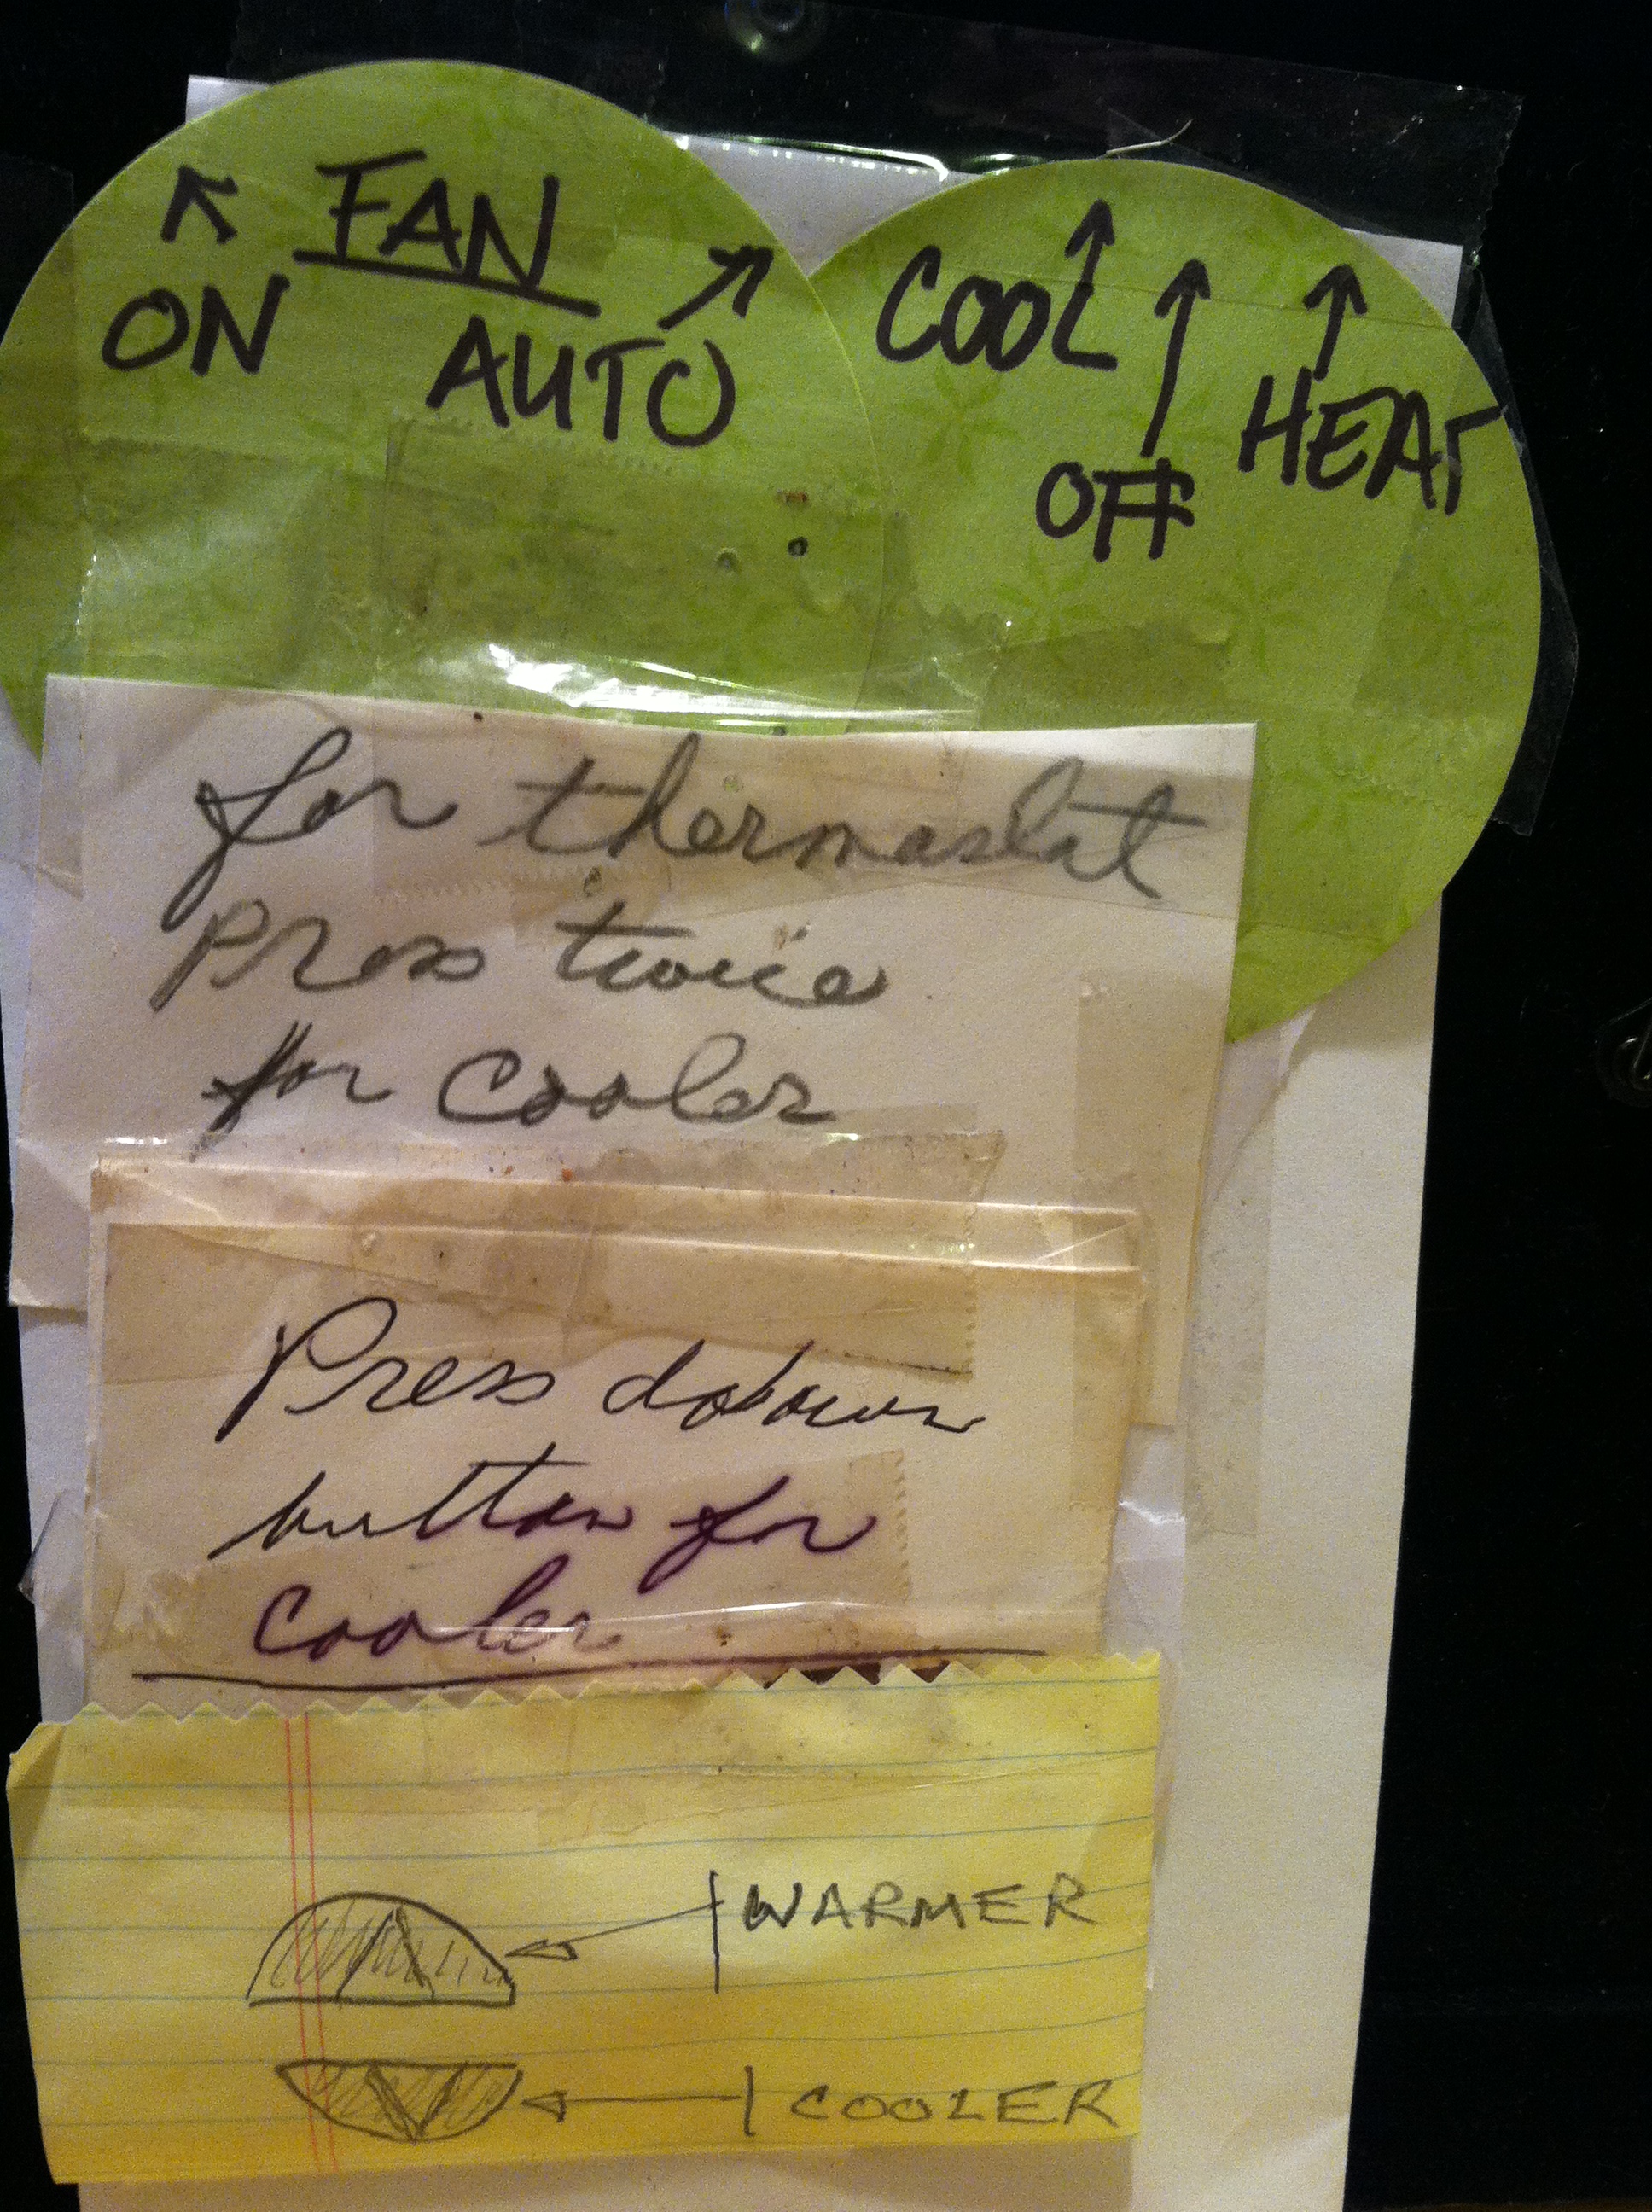 FAN
ON AUTO
COOL
OFF
HEAT
for thermastat
Press twice
for cooler
Press down
button for
cooler
WARMER
COOLER